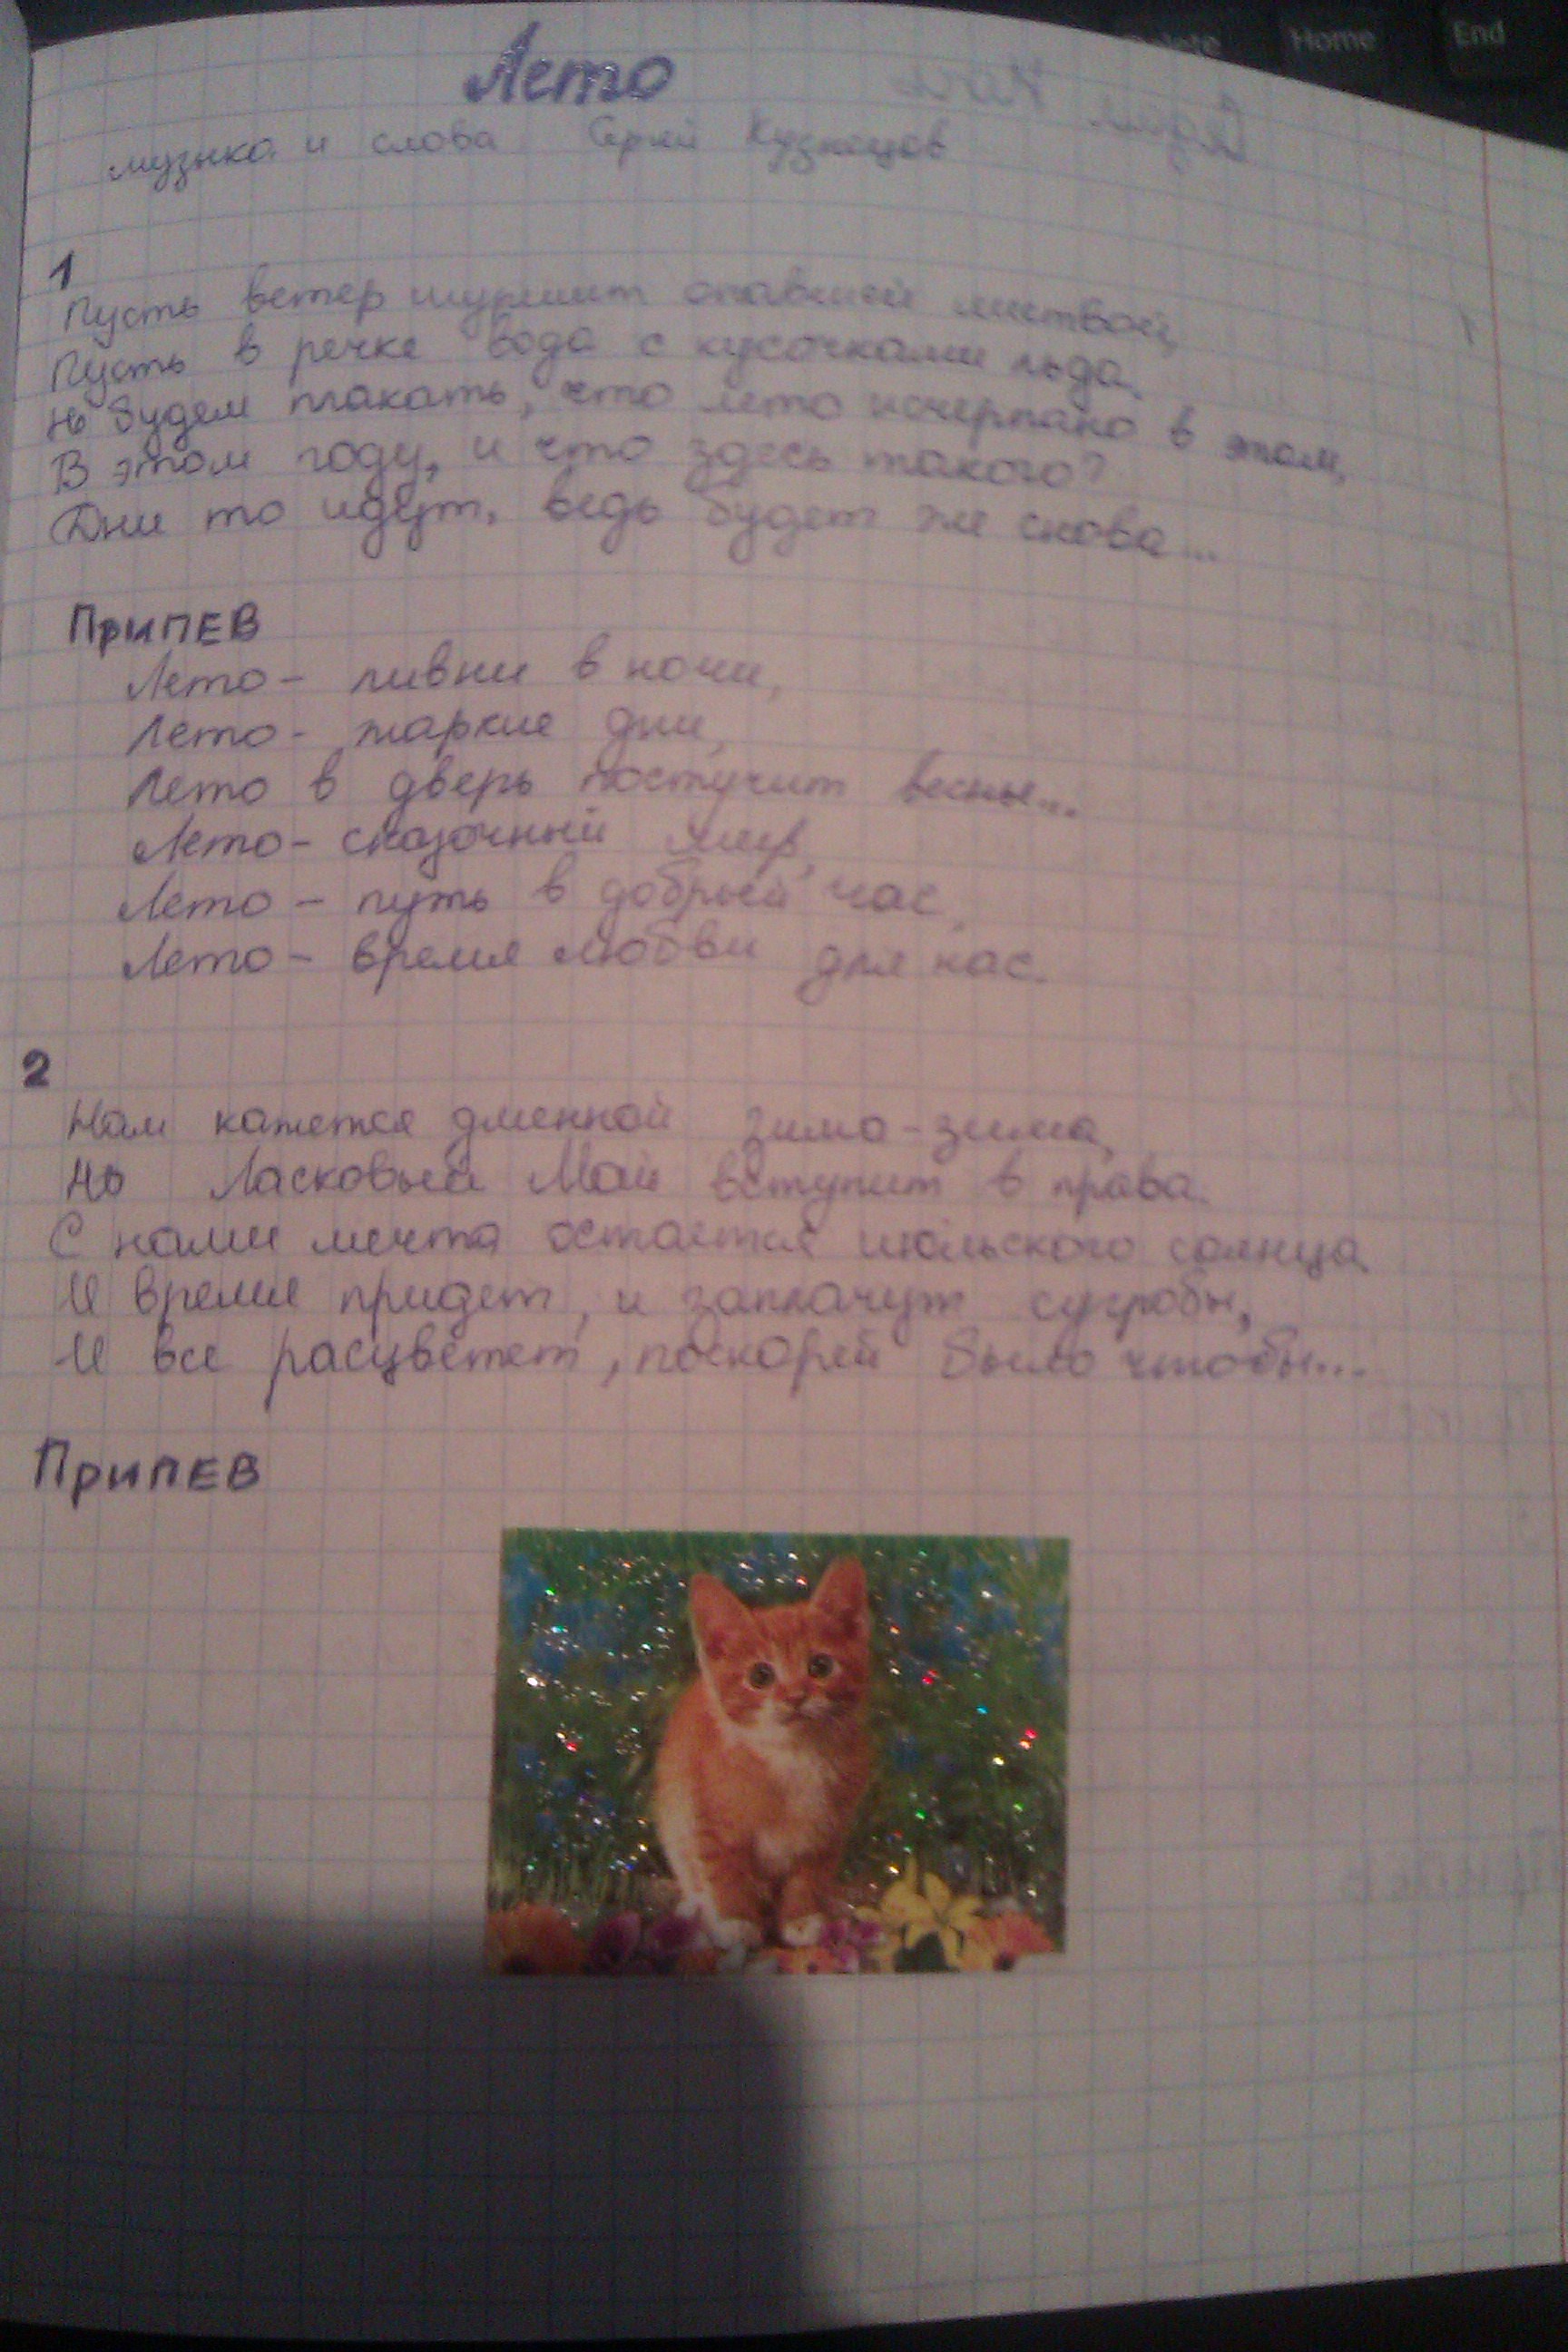 Delete Home End
Лето
музыка и слова Сергей Кузнецов
1
Пусть ветер шуршит опавшей листвой,
Пусть в речке вода с кусочками льда,
Не будем плакать, что лето исчерпано в этом,
В этом году, и что здесь такого?
Дни то идут, ведь будет же снова...
ПрипЕВ
Лето - ливни в ночи,
Лето - жаркие дни,
Лето в дверь постучит весны...
Лето - сказочный мир,
Лето - путь в добрый час,
Лето - время любви для нас.
2
Нам кажется длинной зима-зима,
Но Ласковый Май вступит в права.
С нами мечта остается июльского солнца
И время придет, и заплачут сугробы,
И все расцветет, поскорей было чтобы...
ПрипЕВ